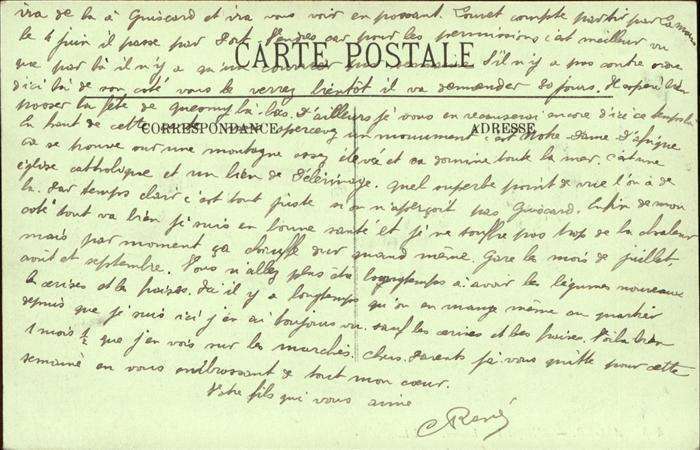 ira de là à Guiscard et ira vous voir en passant. Louvet compte partir par
le 6 juin il passe par Port Vendres car pour les permissions c'est meilleur vu
CARTE POSTALE
que par là il n'y a qu'un courrier par semaine. S'il n'y a pas contre ordre
d'ici là de son côté vous le verrez bientôt il va demander 30 jours. Il espère bien
passer la fête de là-bas. D'ailleurs je vous en recauserai encore d'ici ce temps là
CORRESPONDANCE
ADRESSE
En haut de cette apercevez un monument c'est Notre Dame d'Afrique
ça se trouve sur une montagne assez élevée et ça domine toute la mer. C'est une
église catholique et un lien de Pélerinage. Quel superbe point de vue l'on a de
là. Par temps clair c'est tout juste si on n'aperçoit pas Guiscard. Enfin de mon
coté tout va bien je suis en bonne santé et je ne souffre pas trop de la chaleur
mais par moment ça chauffe dur quand même. Gare les mois de juillet
août et septembre. Vous n'allez plus être longtemps à avoir les légumes nouveaux
les cerises et les fraises. Ici il y a longtemps qu'on en mange même au quartier
depuis que je suis ici j'en ai toujours vu sauf les cerises et les fraises. Voilà bien
1 mois 1/2 que j'en vois sur les marchés. Chers Parents je vous quitte pour cette
semaine en vous embrassant de tout mon cœur.
Votre fils qui vous aime
René